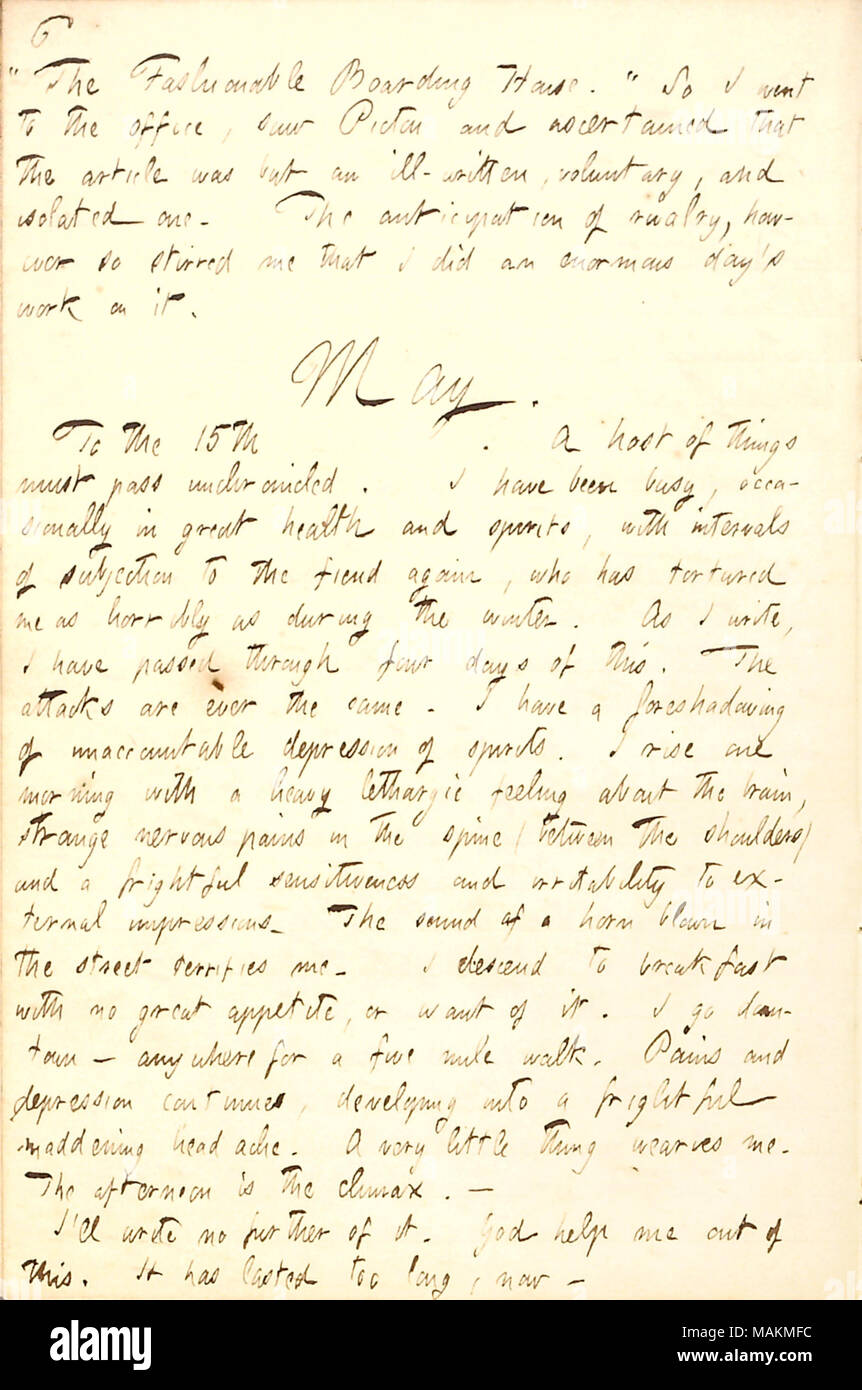 6
"The Fashionable Boarding House." So I went
to the office, saw Picton and ascertained that
the article was but an ill-written, voluntary, and
isolated one. The anticipation of rivalry, how-
ever so stirred me that I did an enormous day's
work on it.
May.
To the 15th. A host of things
must pass unchronicled. I have been busy, occa-
sionally in great health and spirits, with intervals
of subjection to the fiend again, who has tortured
me as horribly as during the winter. As I write,
I have passed through four days of this. The
attacks are ever the same. I have a foreshadowing
of unaccountable depression of spirits. I rise one
morning with a heavy lethargic feeling about the brain,
strange nervous pains in the spine (between the shoulders)
and a frightful sensitiveness and irritability to ex-
ternal impressions. The sound of a horn blown in
the street terrifies me. I descend to breakfast
with no great appetite, or want of it. I go down-
town — anywhere for a five mile walk. Pains and
depression continues, developing into a frightful
maddening head ache. A very little thing wearies me.
The afternoon is the climax. —
I'll write no further of it. God help me out of
this. It has lasted too long, now —
alamy
Image ID: MAKMFC
www.alamy.com